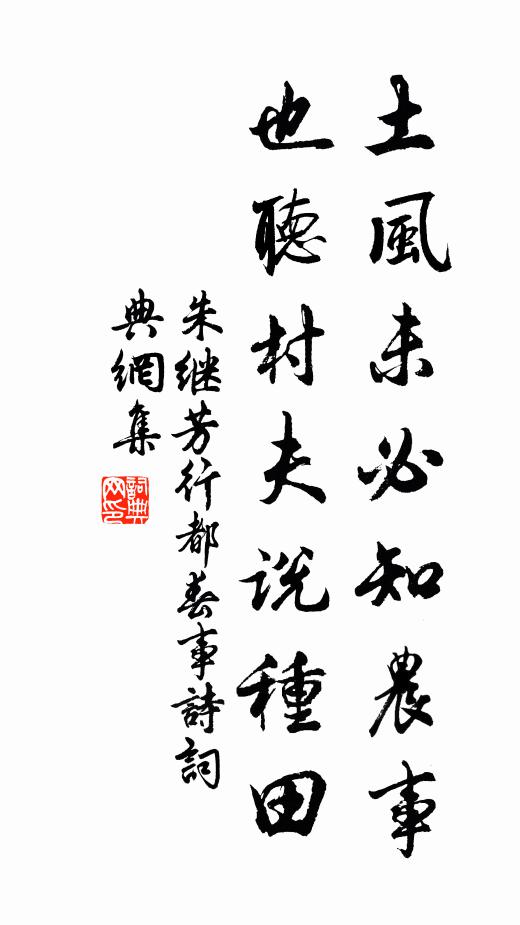 土風未必知農事
也聽村夫説種田
朱继芳行都春事詩詞
典網集
詞典网印